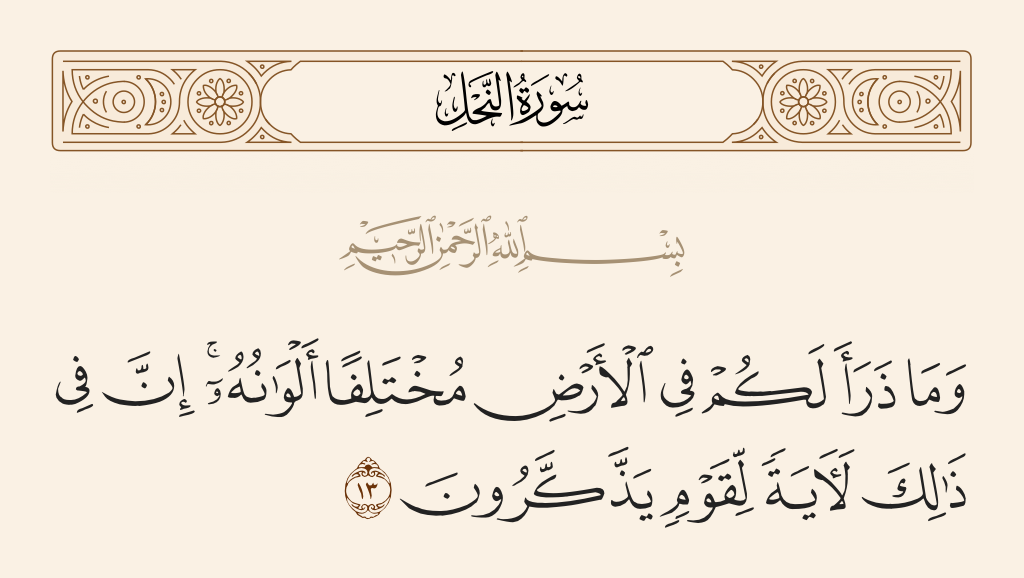 سُورَةُ النَّحْلِ
بِسْمِ ٱللَّهِ ٱلرَّحْمَٰنِ ٱلرَّحِيمِ
وَمَا ذَرَأَ لَكُمْ فِى ٱلْأَرْضِ مُخْتَلِفًا أَلْوَٰنُهُۥٓ ۚ إِنَّ فِى
ذَٰلِكَ لَـَٔايَةً لِّقَوْمٍ يَذَّكَّرُونَ ١٣